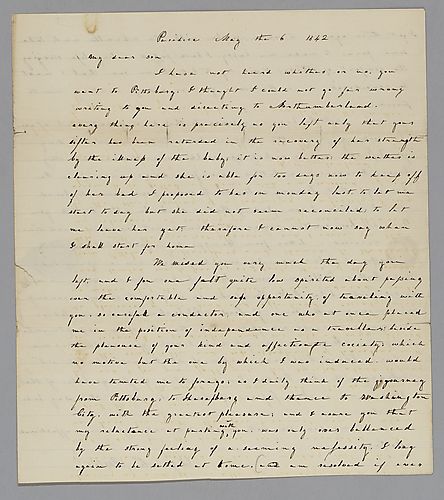 May the 6 1842
My dear son
I have not heard whether or no, you
went to Pittsburg, I thought I could not go far wrong
writing to you and directing to Northumberland.
every thing here is precisely as you left only that your
sister has been retarded in the recovery of her strength
by the illness of the baby, it is now better, the weather is
clearing up and she is able for two days now to keep off
of her bed I proposed to her on monday last to let me
start to day but she did not seem reconciled to let
me leave her yet therefore I cannot now say when
I shall start for home
We missed you very much the day you
left, and I for one felt quite low spirited about passing
over the comfortable and safe opportunity of traveling with
you, so careful a conductor, and one who at once placed
me in the position of independence as a traveller, beside
the pleasure of your kind and affectionate society, which
no motive but the one by which I was induced, would
have tempted me to forego, as I daily think of the journey
from Pittsburg, to and thence to Washington
City, with the greatest pleasure, and I assure you that
my reluctance at parting with you, was only over ballanced
by the strong feeling of a seeming necessity, I long
again to be settled at home, and am resolved if ever